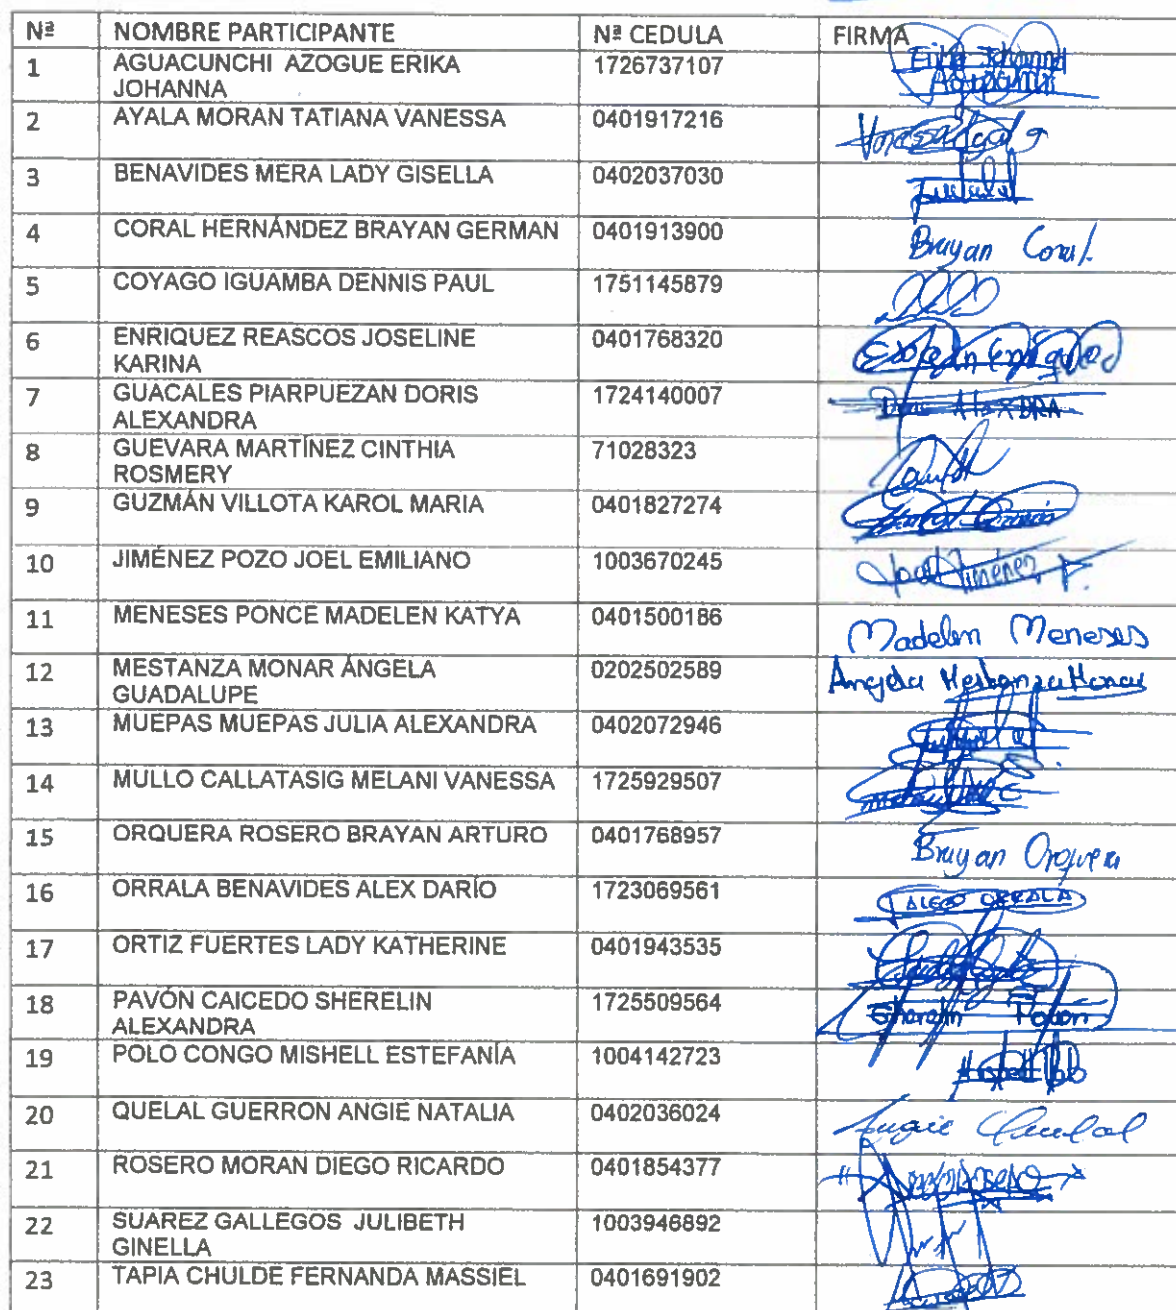 Nª NOMBRE PARTICIPANTE Nª CEDULA FIRMA
1 AGUACUNCHI AZOGUE ERIKA 1726737107
JOHANNA
2 AYALA MORAN TATIANA VANESSA 0401917216
3 BENAVIDES MERA LADY GISELLA 0402037030
4 CORAL HERNÁNDEZ BRAYAN GERMAN 0401913900 Brayan Coral.
5 COYAGO IGUAMBA DENNIS PAUL 1751145879
6 ENRIQUEZ REASCOS JOSELINE 0401768320
KARINA
7 GUACALES PIARPUEZAN DORIS 1724140007
ALEXANDRA
8 GUEVARA MARTÍNEZ CINTHIA 71028323
ROSMERY
9 GUZMÁN VILLOTA KAROL MARIA 0401827274
10 JIMÉNEZ POZO JOEL EMILIANO 1003670245 Joel Jiménez P.
11 MENESES PONCE MADELEN KATYA 0401500186 Madelen Meneses
12 MESTANZA MONAR ÁNGELA 0202502589 Angela Mestanza Monar
GUADALUPE
13 MUEPAS MUEPAS JULIA ALEXANDRA 0402072946
14 MULLO CALLATASIG MELANI VANESSA 1725929507
15 ORQUERA ROSERO BRAYAN ARTURO 0401768957 Brayan Orquera
16 ORRALA BENAVIDES ALEX DARÍO 1723069561 ORRALA
17 ORTIZ FUERTES LADY KATHERINE 0401943535
18 PAVÓN CAICEDO SHERELIN 1725509564 Sherelin Pavón
ALEXANDRA
19 POLO CONGO MISHELL ESTEFANÍA 1004142723
20 QUELAL GUERRON ANGIE NATALIA 0402036024 Angie Quelal
21 ROSERO MORAN DIEGO RICARDO 0401854377
22 SUAREZ GALLEGOS JULIBETH 1003946892
GINELLA
23 TAPIA CHULDE FERNANDA MASSIEL 0401691902